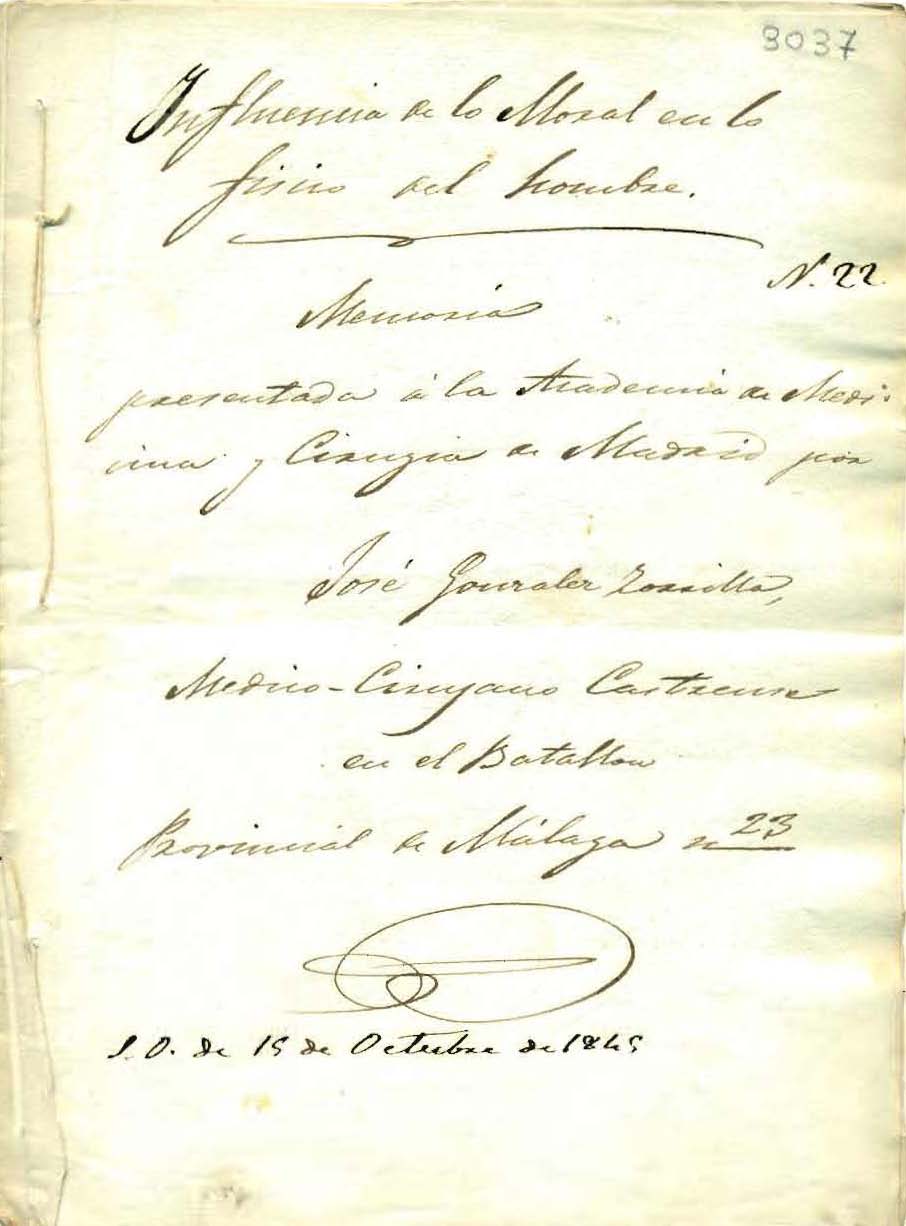 3037
Influencia de lo Moral en lo
fisico del hombre.
N. 22.
Memoria
presentada á la Academia de Medi-
cina y Cirugia de Madrid por
José Gonzalez Zorrilla,
Medico-Cirujano Castrense
en el Batallon
Provincial de Málaga nº 23
S. O. de 15 de Octubre de 1845